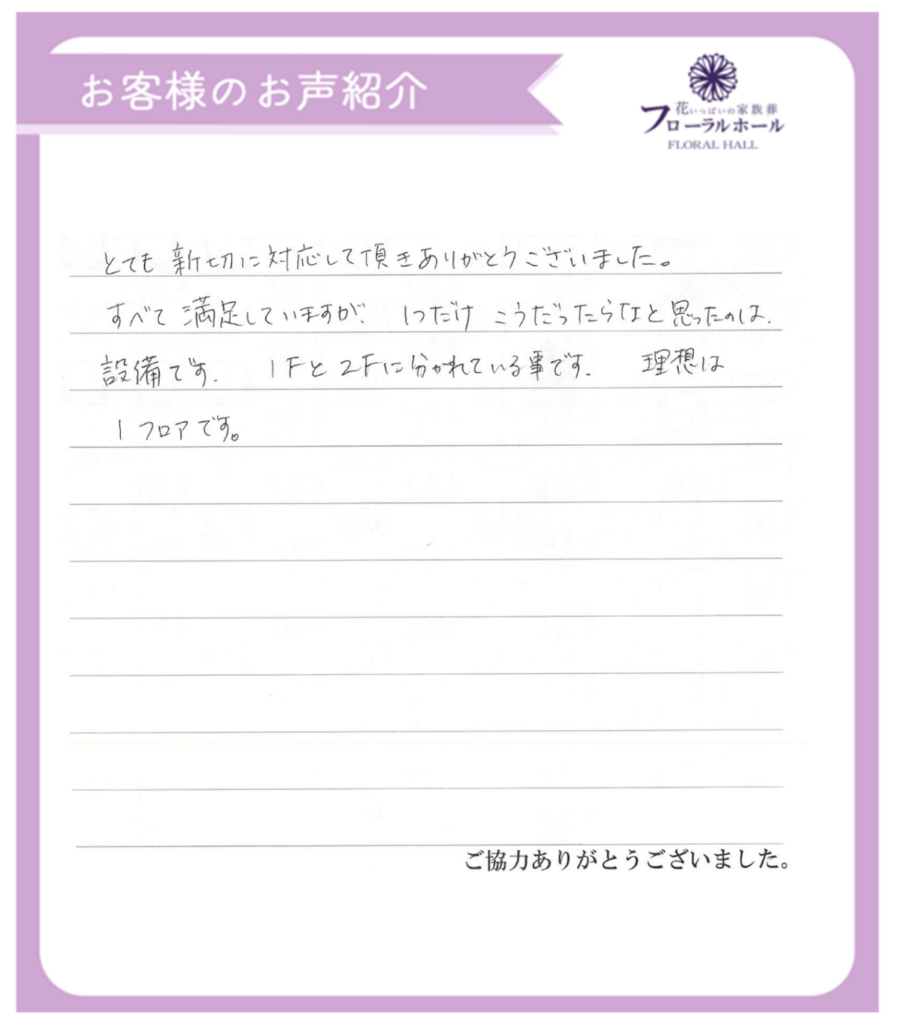 お客様のお声紹介
花いっぱいの家族葬
フローラルホール
FLORAL HALL
とても新切に対応して頂きありがとうございました。
すべて満足していますが、1つだけ こうだったらなと思ったのは、
設備です。 1Fと2Fに分かれている事です。 理想は
1フロアです。
ご協力ありがとうございました。